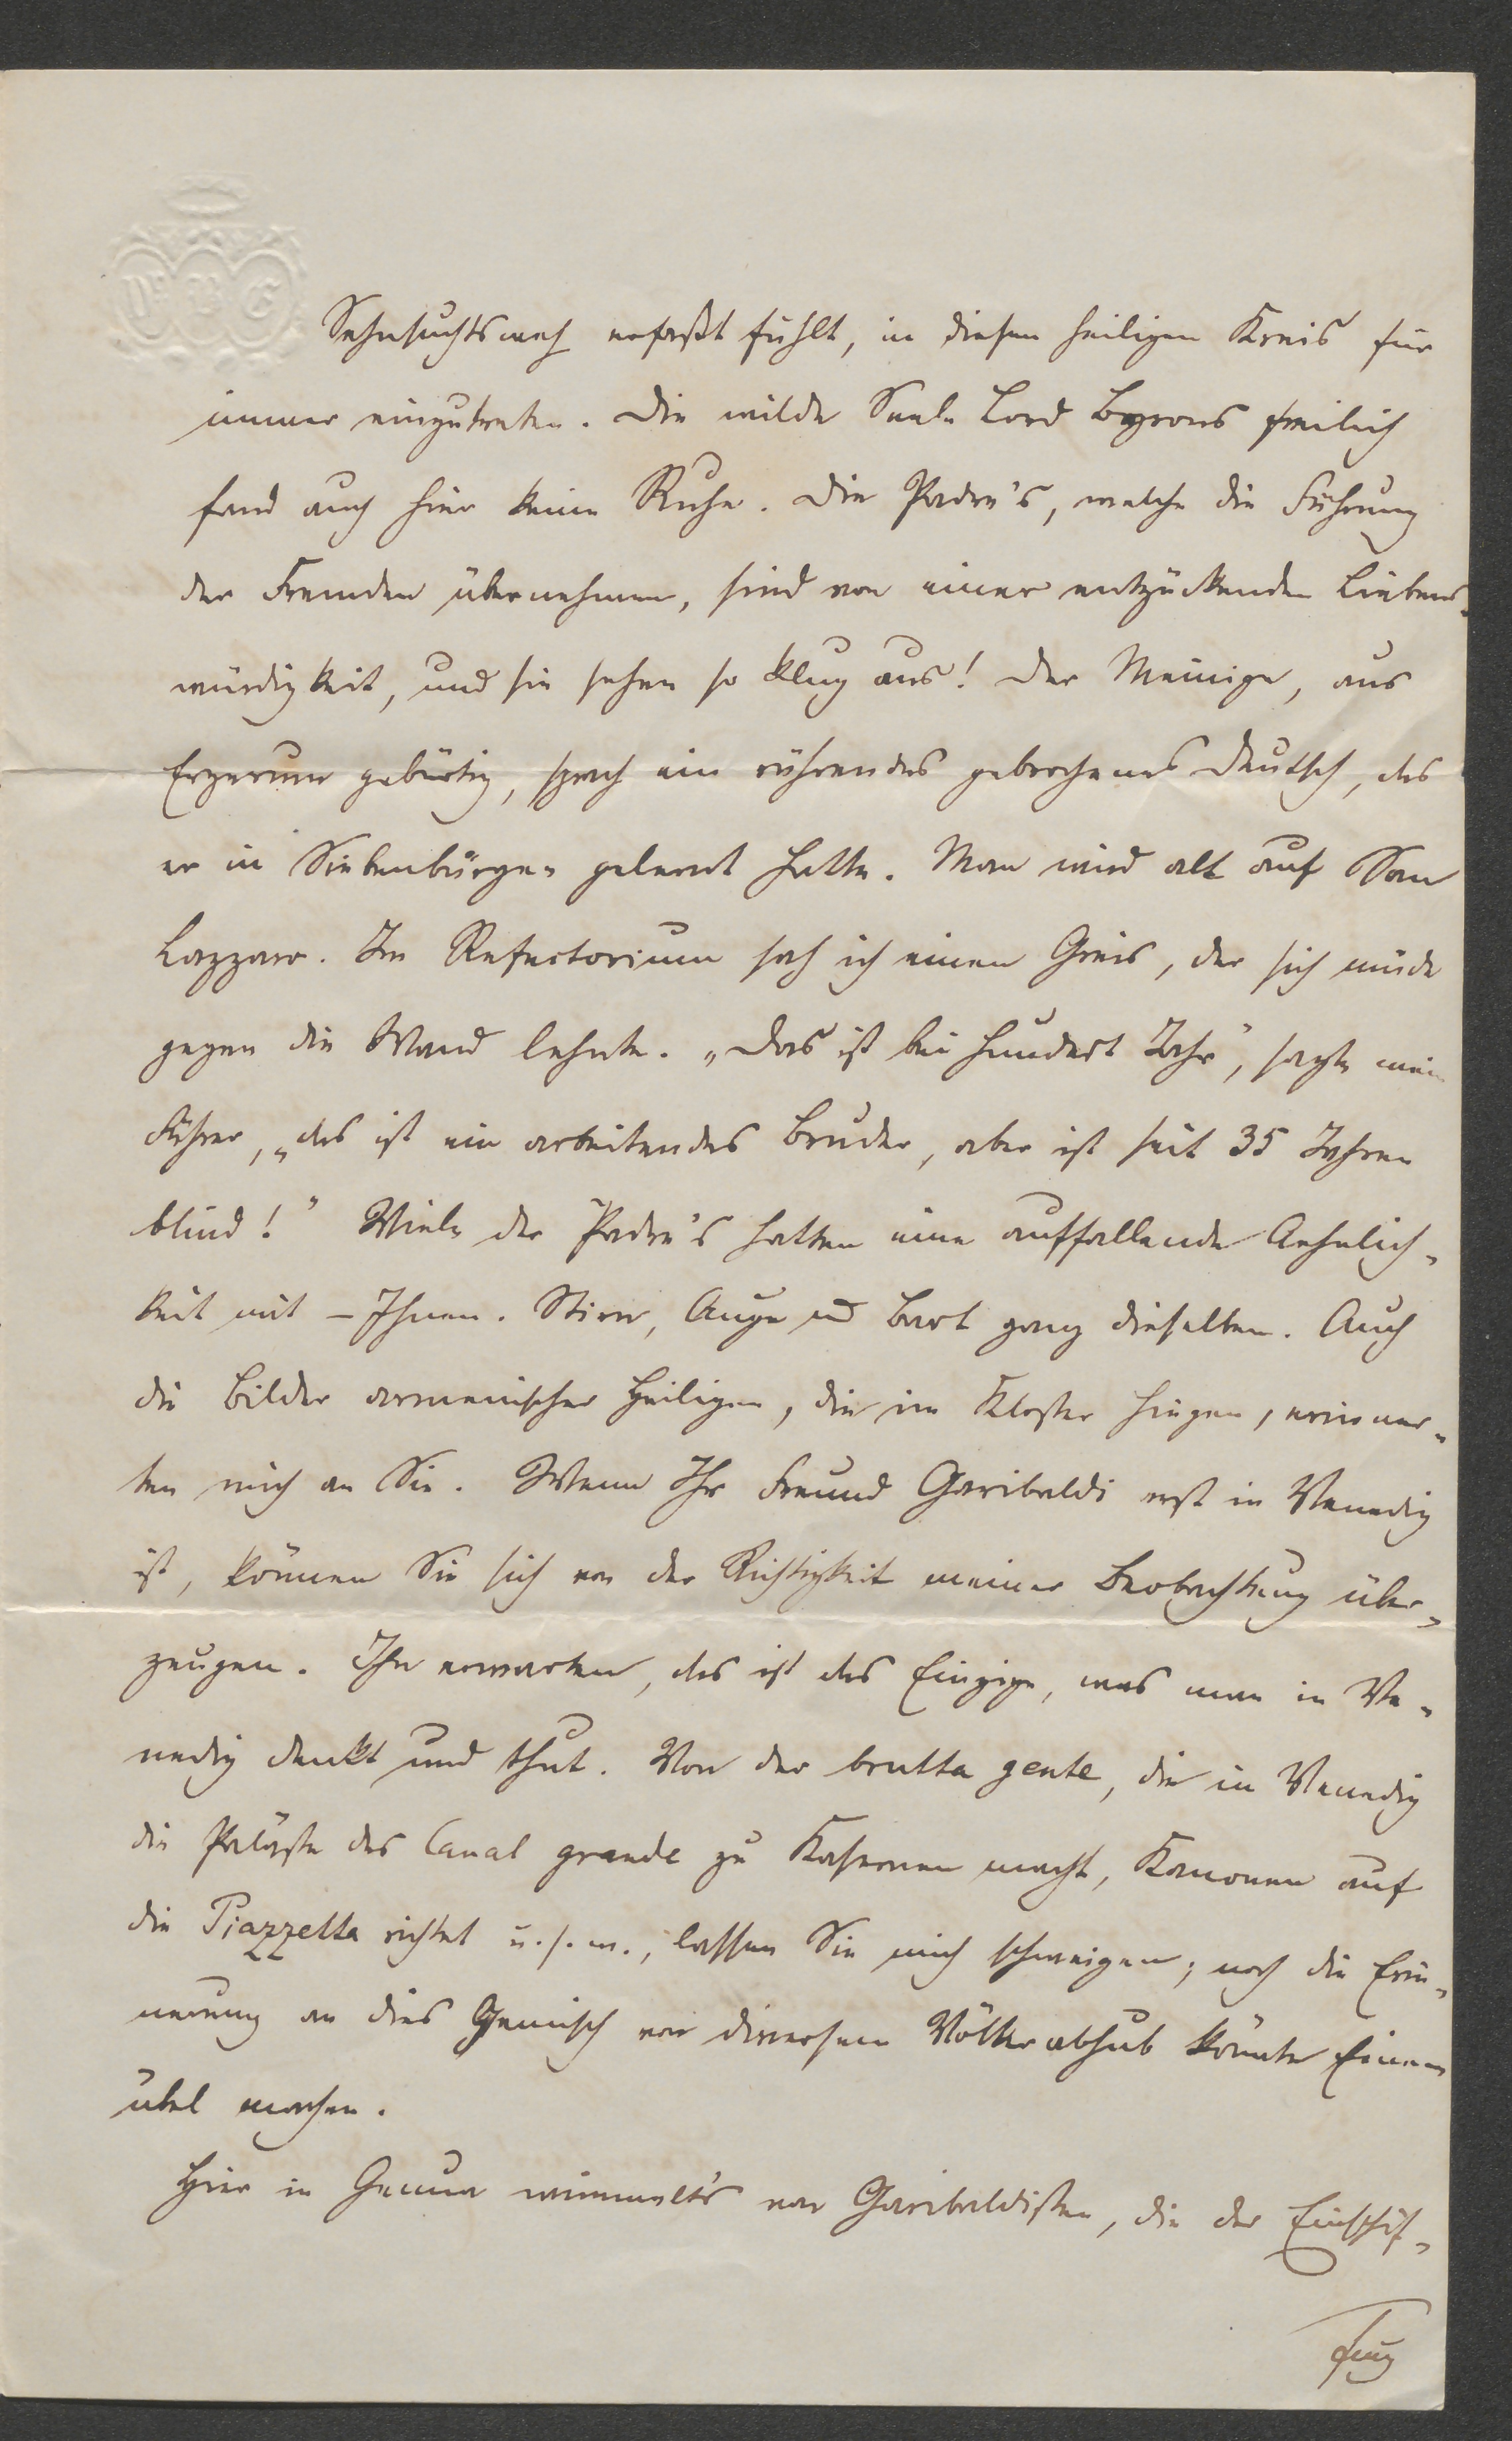 Sehnsuchtsweh erfaßt fühlt, in diesen heiligen Kreis für
immer einzutreten. Die wilde Seele Lord Byrons freilich
fand auch hier keine Ruhe. Die Padre's, welche die Führung
der Fremden übernehmen, sind von einer entzückenden Liebens-
würdigkeit, und sie sehen so klug aus! Der Meinige, aus
Erzerum gebürtig, sprach ein rührendes gebrochenes Deutsch, das
er in Siebenbürgen gelernt hatte. Man wird alt auf San
Lazzaro. Im Refectorium sah ich einen Greis, der sich müde
gegen die Wand lehnte. „Das ist bei hundert Jahr", sagte mein
Führer, „das ist ein arbeitendes Bruder, aber ist seit 35 Jahren
blind!" Viele der Padre's hatten eine auffallende Aehnlich-
keit mit – Ihnen. Stirn, Auge u Bart ganz dieselben. Auch
die Bilder armenischer Heiligen, die im Kloster hingen, erinner-
ten mich an Sie. Wenn Ihr Freund Garibaldi erst in Venedig
ist, können Sie sich von der Richtigkeit meiner Beobachtung über-
zeugen. Ihn erwarten, das ist das Einzige, was man in Ve-
nedig denkt und thut. Von der brutta gente, die in Venedig
die Paläste des Canal grande zu Kasernen macht, Kanonen auf
die Piazzetta richtet u.s.w., lassen Sie mich schweigen; noch die Erin-
nerung an dies Gemisch von diversem Völkerabhub könnte Einem
übel machen.
Hier in Genua wimmelt's von Garibaldisten, die der Einschif-
fung